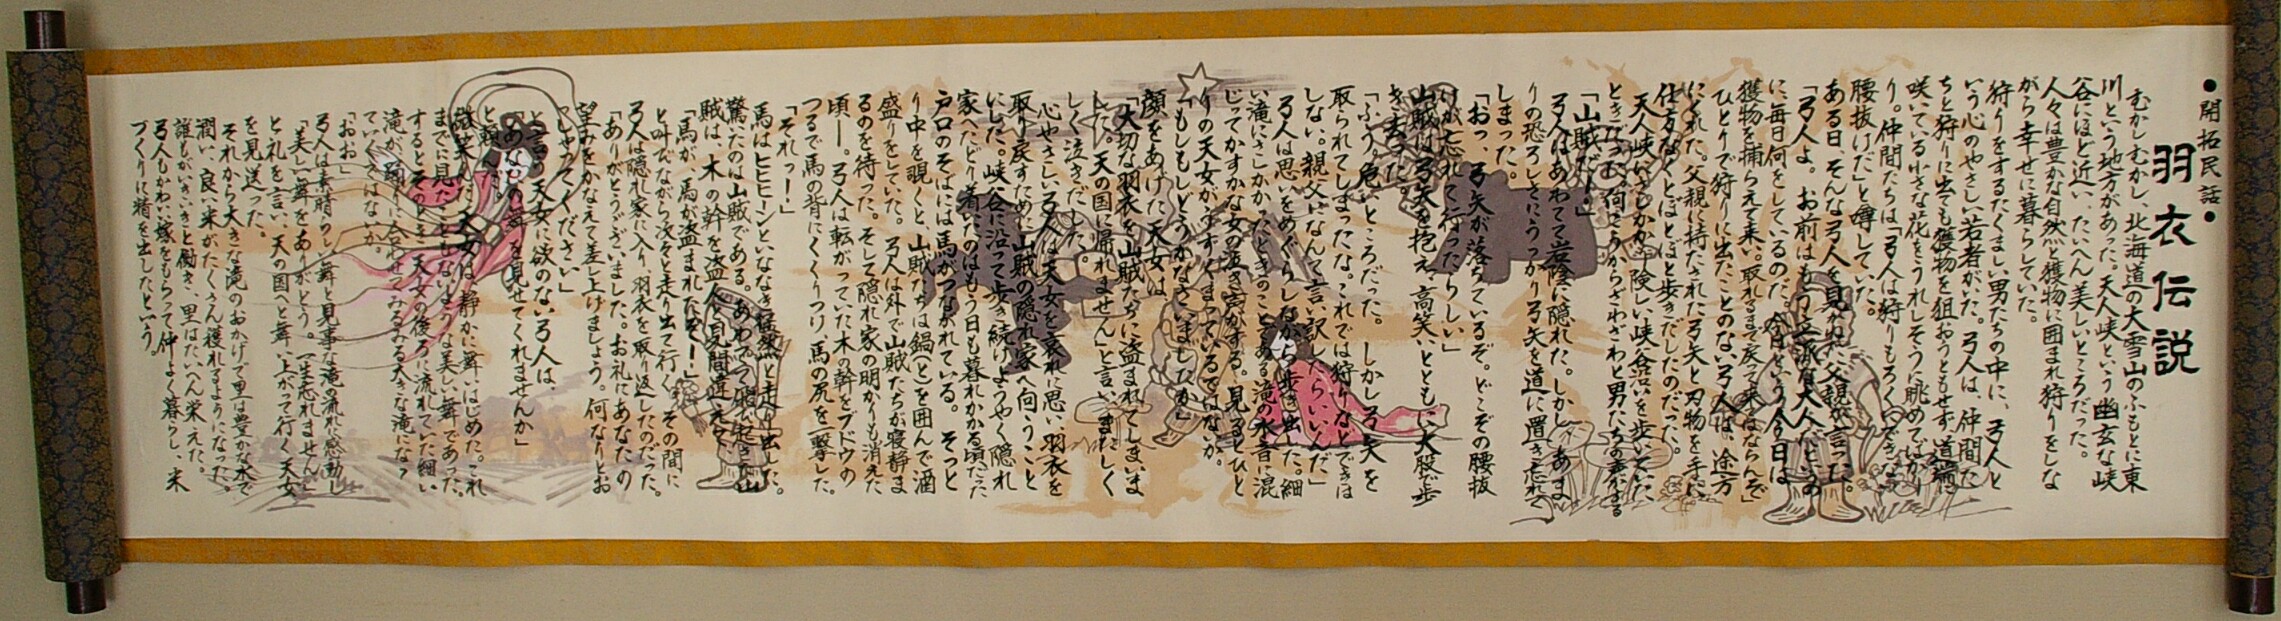 ●開拓民話●
羽衣伝説
むかしむかし、北海道の大雪山のふもとに東
川という地方があった。天人峡という幽玄な峡
谷にほど近い、たいへん美しいところだった。
人々は豊かな自然と獲物に囲まれ狩りをしな
がら幸せに暮らしていた。
狩りをするたくましい男たちの中に、弓人と
いう心のやさしい若者がいた。弓人は、仲間た
ちと狩りに出ても獲物を狙おうともせず、道端に
咲いている小さな花をうれしそうに眺めてばか
り。仲間たちは「弓人は狩りもろくにできない
腰抜けだ」と噂していた。
ある日、そんな弓人を見かねた父親が言った。
「弓人よ。お前はもう立派な大人だというの
に毎日何をしているのだ。今日という今日は
獲物を捕らえて来い。取れるまで戻って来てはならんぞ」
ひとりで狩りに出たことのない弓人は、途方
にくれた。父親に持たされた弓矢と刃物を手に
仕方なくとぼとぼと歩きだしたのだった。
天人峡にさしかかり険しい峡谷沿いを歩いていた
ときだった。何やらからざわざわと男たちの声がする
「山賊だー！」
弓人はあわてて岩陰に隠れた。しかし、あま
りの恐ろしさにうっかり弓矢を道に置き忘れて
しまった。
「おっ、弓矢が落ちているぞ。どこぞの腰抜
けが忘れて行ったらしい」
山賊は弓矢を抱え、高笑いとともに大股で歩
き去った。
「ふう、危ないところだった。しかし弓矢を
取られてしまったな。これでは狩りなどできは
しない。親父になんて言い訳したらいいんだ」
弓人は思いをめぐらしながら歩き出した。細
い滝にさしかかったときのことである。滝の水音に混
じってかすかな女の泣き声がする。見るとひと
りの天女がうずくまっているではないか。
「もしもしどうかなさいましたか」
顔をあげた天女は
「大切な羽衣を山賊たちに盗まれてしまいま
した。天の国に帰れません」と言い、またしく
しく泣きだした。
心やさしい弓人は天女を哀れに思い、羽衣を
取り戻すために山賊の隠れ家へ向うこと
にした。峡谷に沿って歩き続けようやく隠れ
家へたどり着いたのはもう日も暮れかかる頃だった
戸口のそばには馬がつながれている。そっと
り中を覗くと、山賊たちは鍋(と)を囲んで酒
盛りをしていた。弓人は外で山賊たちが寝静ま
るのを待った。そして隠れ家の明かりも消えた
頃ー。弓人は転がっていた木の幹をブドウの
つるで馬の背にくくりつけ、馬の尻を一撃した。
「それっー！」
馬はヒヒヒーンと、いななき猛然と走り出した。
驚いたのは山賊である。あわてて飛び起きた山
賊は、木の幹を盗人と見間違えて、
「馬が、馬が盗まれたぞー！」
と叫びながら次々と走り出て行く。その間に
弓人は隠れ家に入り、羽衣を取り返したのだった。
「ありがとうございました。お礼にあなたの
望みをかなえて差し上げましょう。何なりとお
っしゃってください」
と言う天女に欲のない弓人は、
「あなたの舞を見せてくれませんか」
と頼
微笑んだ天女は、静かに舞いはじめた。これ
までに見たこともないような美しい舞であった。
するとそのとき、天女の後ろに流れていた細い
滝が、踊りに合わせてみるみる大きな滝になっ
ていくではないか。
「おお」
弓人は素晴らしい舞と見事な滝の流れに感動し
「美しい舞をありがとう。一生忘れません」
と礼を言い、天の国へと舞い上がって行く天女
を見送った。
それから大きな滝のおかげで里は豊かな水で
潤い、良い米がたくさん獲れるようになった。
誰もがいきいきと働き、里はたいへん栄えた。
弓人もかわいい嫁をもらって仲よく暮らし、米
づくりに精を出したという。